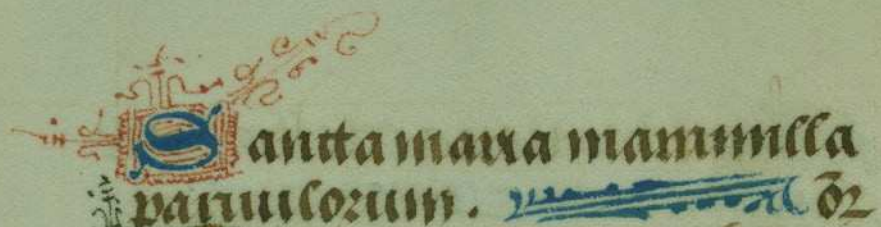 Sancta maria mammilla
paruulorum. or̄